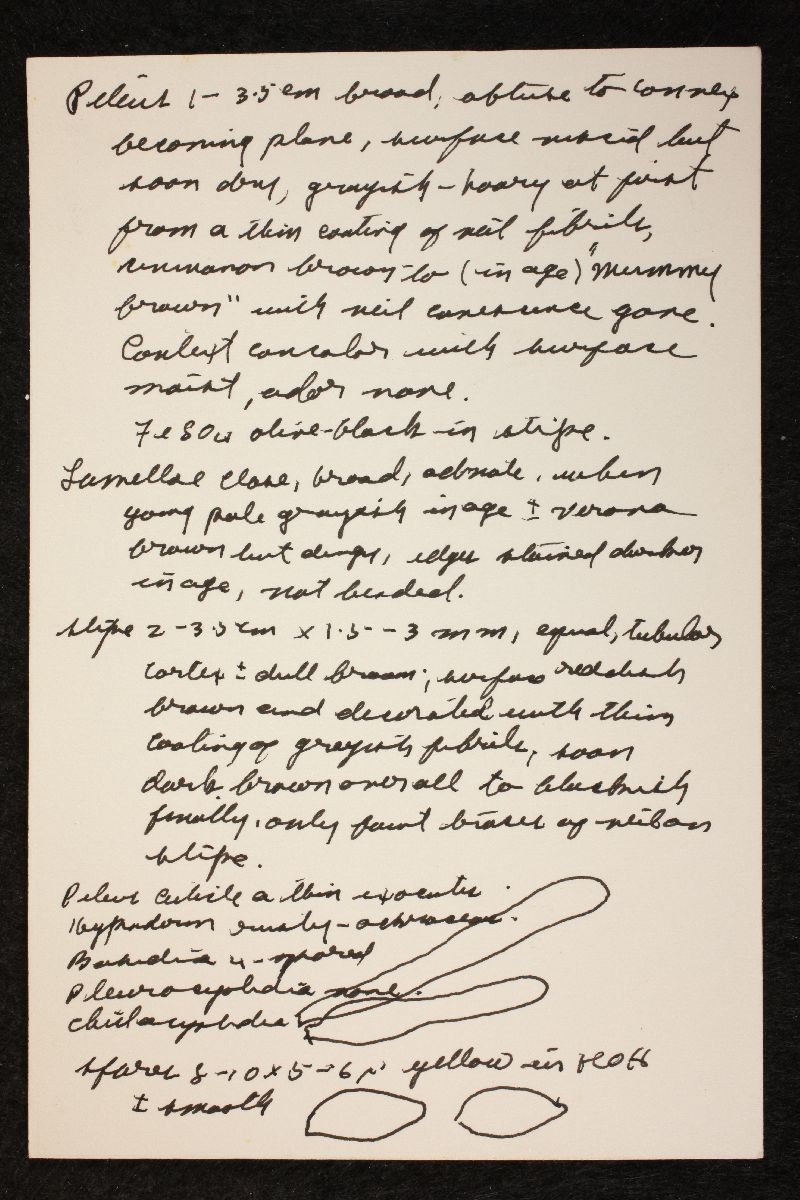 Pileus 1 - 3.5 cm broad, obtuse to convex
becoming plane, surface viscid but
soon dry, grayish-hoary at first
from a thin coating of veil fibrils,
cinnamon brown to (in age) "Mummy
brown" with veil gone.
Context concolor with surface
moist, odor none.
FeSO4 olive-black in stipe.
Lamellae close, broad, adnate, when
young pale grayish in age ± verona
brown but dingy, edges stained darker
in age, not beaded.
stipe 2 - 3.5 cm x 1.5 - 3 mm, equal, tubular
cortex ± dull brown; surface reddish
brown and decorated with thin
coating of grayish fibrils, soon
dark brown overall to blackish
finally, only faint traces of veil on
stipe.
Pileus cuticle a thin
Hypoderm rusty-ochraceous.
Basidia 4-spored
Pleurocystidia none.
Cheilocystidia
Spores 8-10 x 5-6 µ yellow in KOH
± smooth